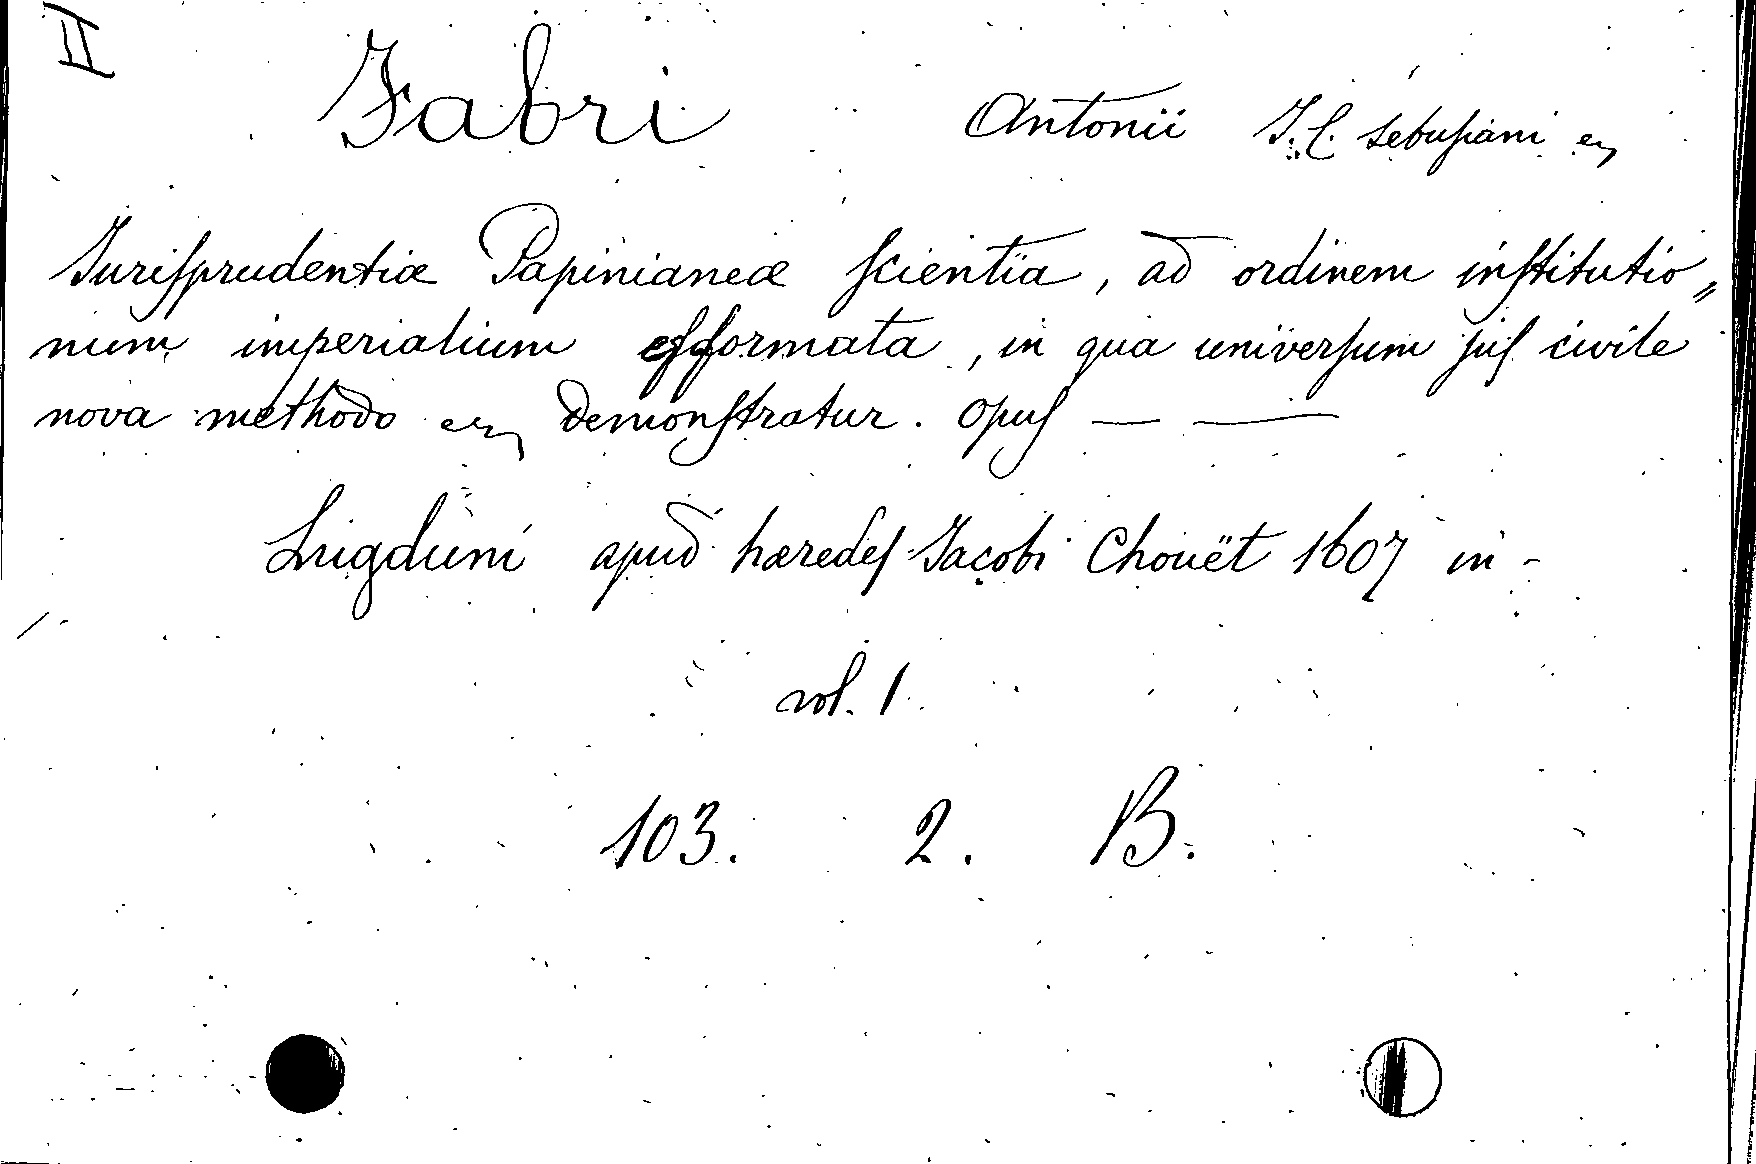 II
Fabri Antonii J.C. Sebusiani etc
Jurisprudentiæ Papinianeæ scientia, ad ordinem institutio„
num imperialium efformata, in qua universum jus civile
nova methodo etc demonstratur. Opus — —
Lugduni apud hæredes Jacobi Chouët 1607 in -
vol. 1.
103. 2. B.